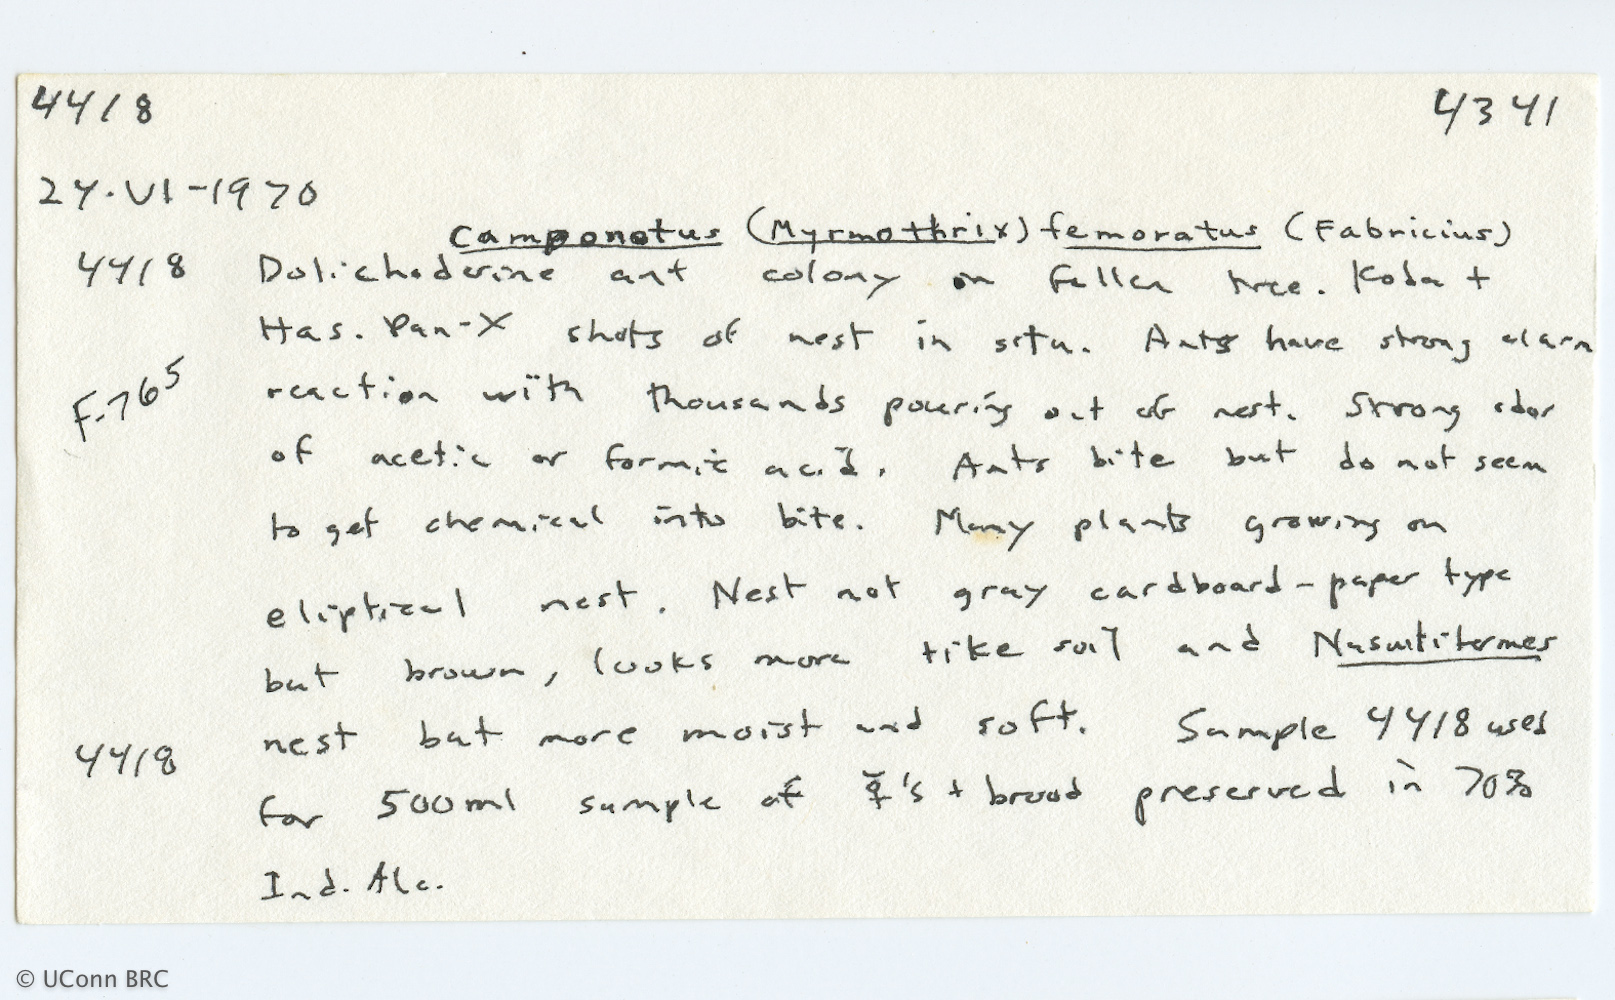 4418 4341
24·VI-1970
Camponotus (Myrmothrix) femoratus (Fabricius)
4418 Dolichoderine ant colony on fallen tree. Koda +
Has. Pan-X shots of nest in situ. Ants have strong alarm
F-765 reaction with thousands pouring out of nest. Strong odor
of acetic or formic acid. Ants bite but do not seem
to get chemical into bite. Many plants growing on
eliptical nest. Nest not gray cardboard-paper type
but brown, looks more like soil and Nasutitermes
nest but more moist and soft. Sample 4418 used
4418 for 500ml sample of ☿'s + brood preserved in 70%
Ind. Alc.
© UConn BRC